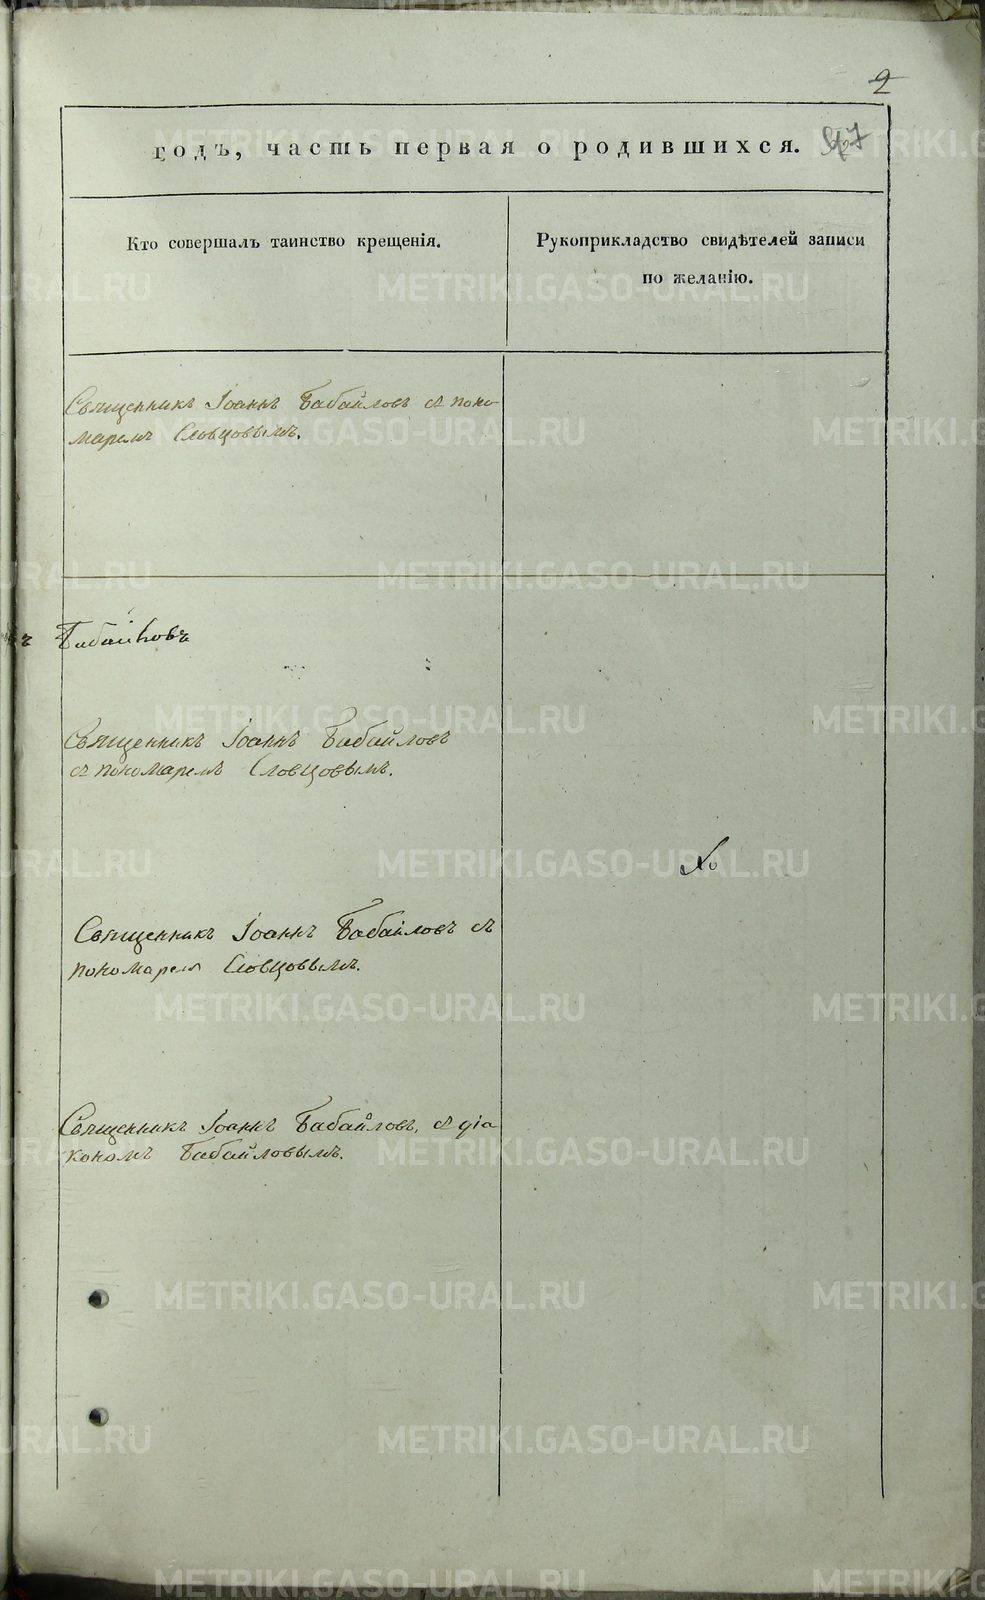 2
годъ, часть первая о родившихся.
Кто совершалъ таинство крещенія.
Рукоприкладство свидѣтелей записи
по желанію.
Священникъ Іоаннъ Бабайловъ съ поно-
маремъ Словцовымъ.
Бабайловъ
Священникъ Іоаннъ Бабайловъ
съ пономаремъ Словцовымъ.
Священникъ Іоаннъ Бабайловъ съ
пономаремъ Словцовымъ.
Священникъ Іоаннъ Бабайловъ, съ діа
кономъ Бабайловымъ.
METRIKI.GASO-URAL.RU